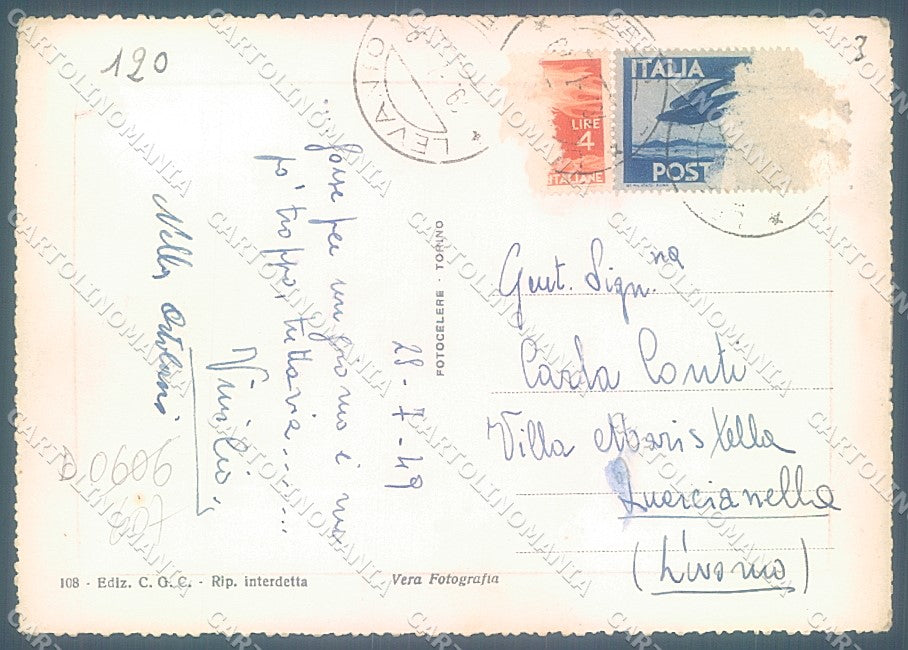 120
3
LEVANTO
LIRE
4
ITALIANE
ITALIA
POST
28-7-49
forse per un giorno è un
po' troppo, tuttavia......
Virgilio
Nella
FOTOCELERE - TORINO
Gent. Sign.na
Carla Conti
Villa Maris Stella
Quercianella
(Livorno)
0690
108 - Ediz. C. G. C. - Rip. interdetta
Vera Fotografia
CARTOLINOMANIA